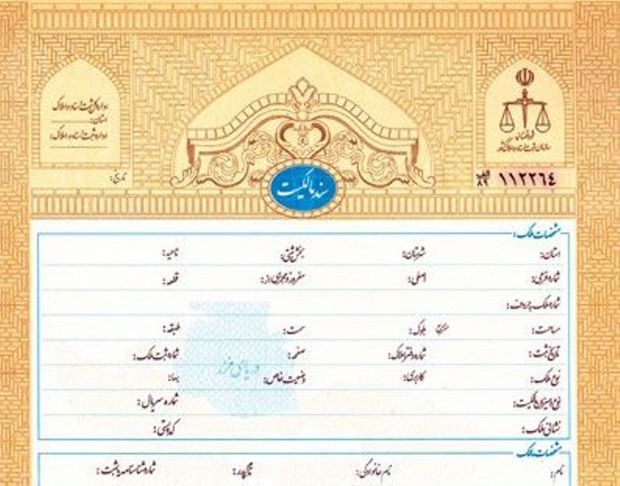 اداره کل ثبت اسناد و املاک
استان:
اداره ثبت اسناد و املاک:
تاریخ:
قوه قضائیه
سازمان ثبت اسناد و املاک کشور
سند مالکیت
۱۱۲۲۶۴
۸۹
مشخصات ملک:
استان: شهرستان: بخش ثبتی: ناحیه:
شماره فرعی: اصلی: مفروز و مجزی از: قطعه:
شماره ملک به حروف:
مساحت: مترمربع بلوک: سمت: طبقه:
تاریخ ثبت: شماره دفتر املاک: صفحه: شماره ثبت ملک:
نوع ملک: کاربری: وضعیت خاص: بهاء:
نوع و میزان مالکیت: شماره سریال:
نشانی ملک: کد پستی:
دریای خزر
مشخصات مالک:
نام: نام خانوادگی: نام پدر: شماره شناسنامه یا ثبت: